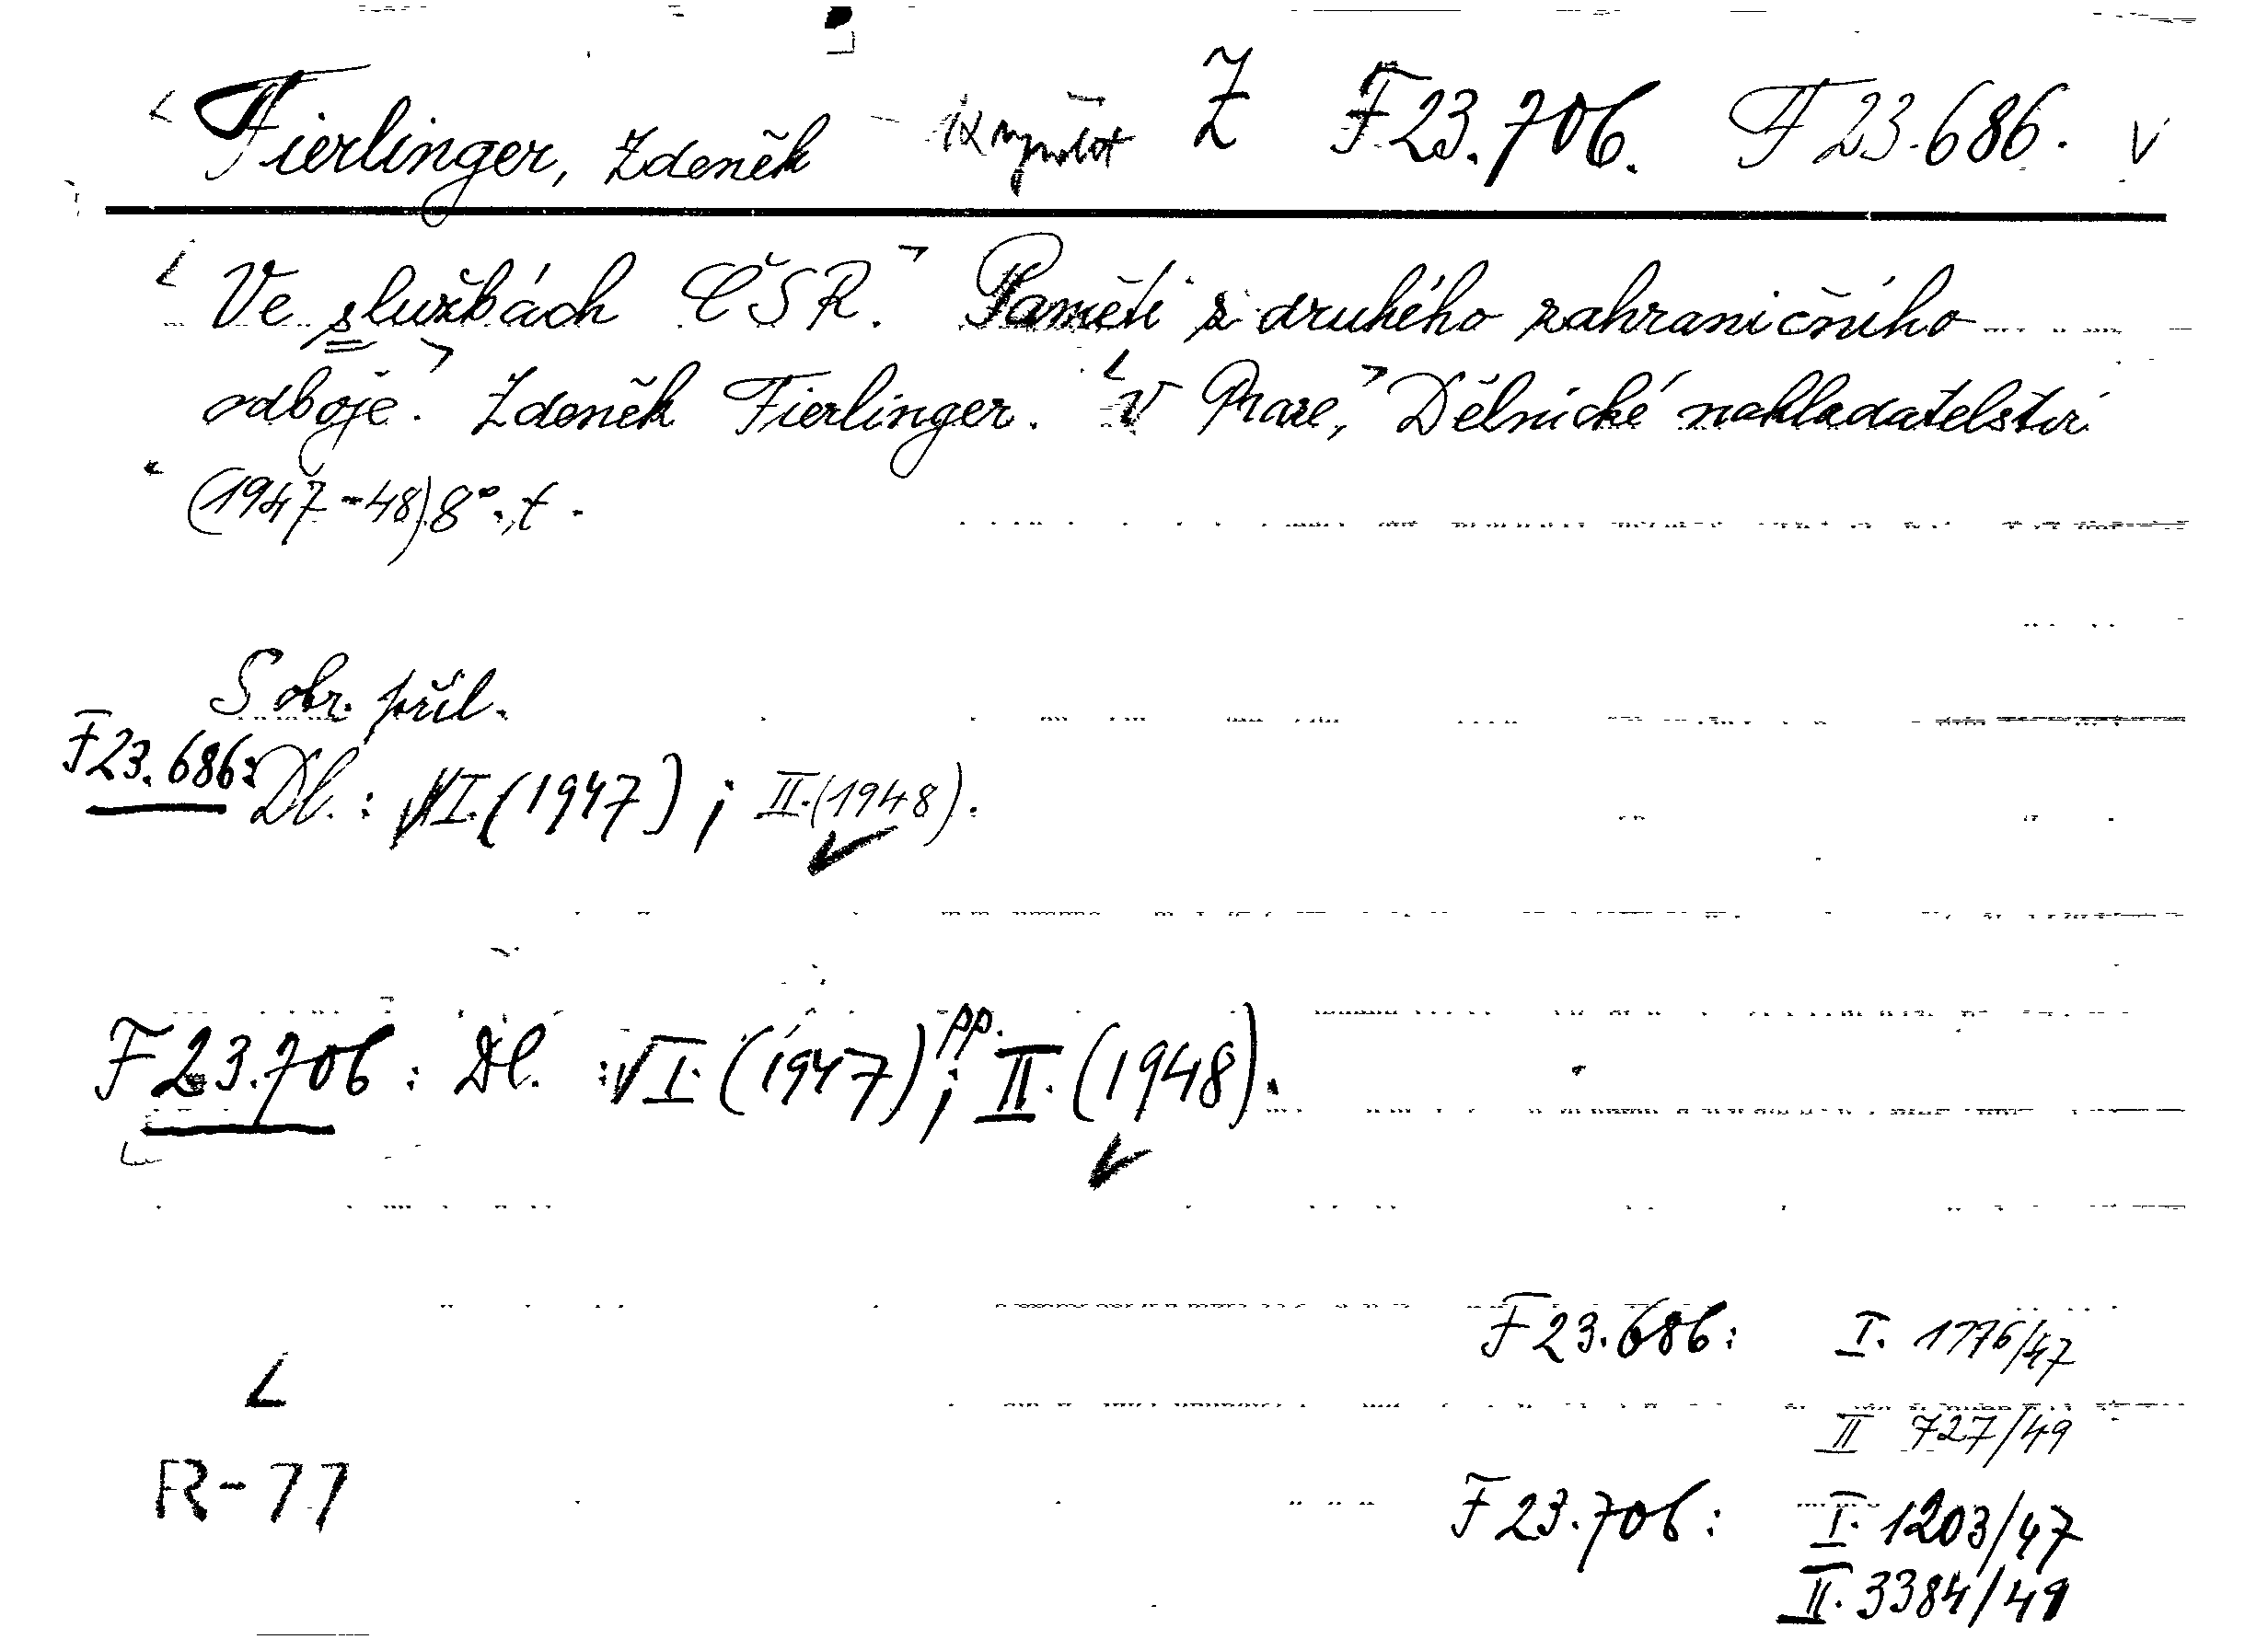 Fierlinger, Zdeněk 1x Ž F 23.706. F 23.686. V
Ve službách ČSR. Paměti z druhého zahraničního
odboje. Zdeněk Fierlinger. V Praze, Dělnické nakladatelství
(1947-48) 8°., t.
S obr. příl.
F 23.686: Dl.: I. (1947); II. (1948).
F 23.706: Dl.: I. (1947); pp. II. (1948).
F 23.686: I. 1176/47
II 727/49
R-77
F 23.706: I. 1203/47
II. 3384/49